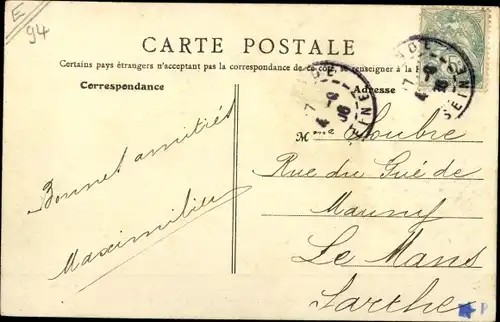 E
94
CARTE POSTALE
Certains pays étrangers n'acceptant pas la correspondance de ce côté, se renseigner à la
Correspondance
Adresse
Bonnes amitiés
Maximilien
Mme Loubre
Rue du Gué de
Mauny
Le Mans
Sarthe